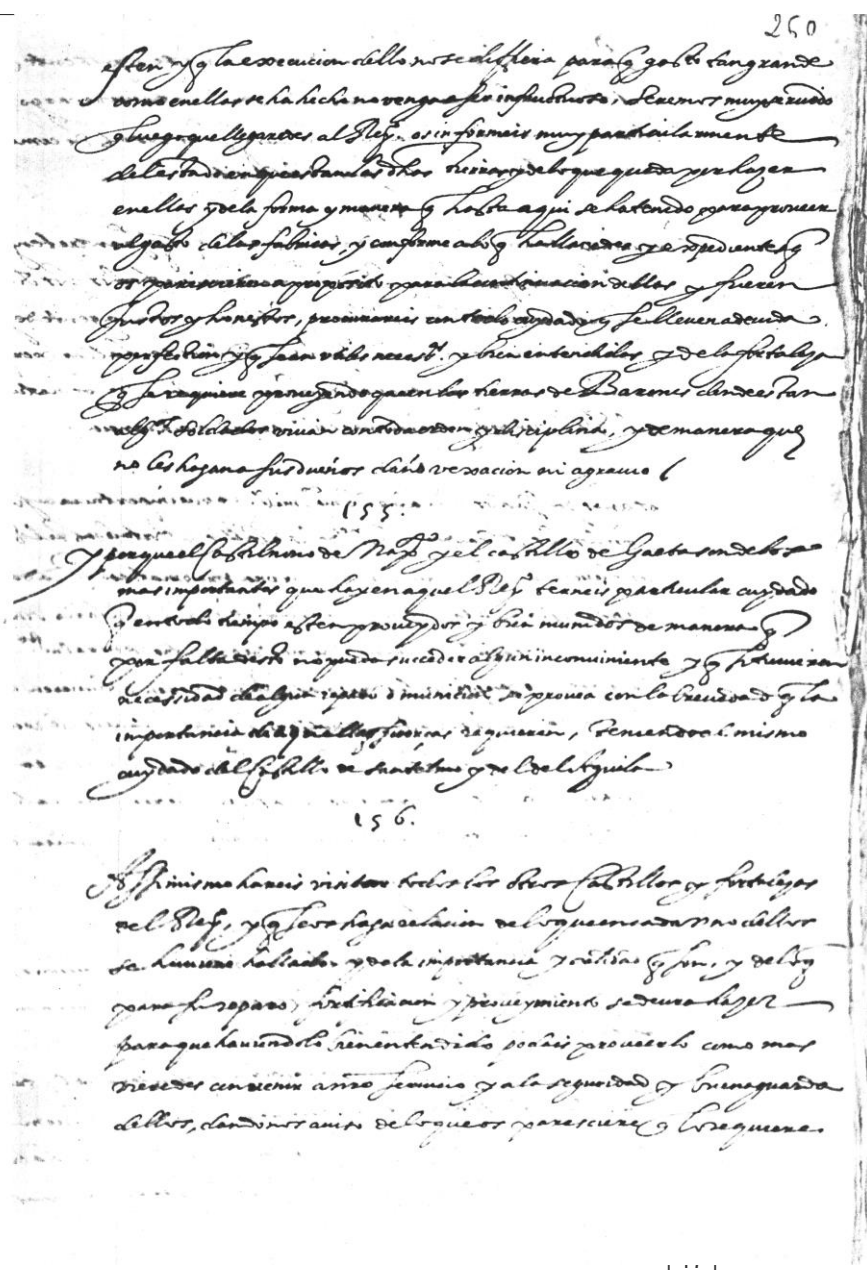 260
esten y q̃ la execucion dello no se difiera para q̃ gasto tan grande
como en ellas se ha hecho no venga a ser infructuoso, Seremos muy seruido
q̃ luego que llegaredes al Reyº os informeis muy particularmente
del estado en que estan las dhas tierras y de lo que queda por hazer
en ellas y de la forma y manera q̃ hasta aqui se ha tenido para proueer
el gasto de las fabricas, y conforme a lo q̃ hallaredes y expedientes q̃
os parescieren a proposito para la continuacion dellas y fueren
justos y honestos, procurareis con todo cuydado q̃ se lleuen a deuida
perfection y q̃ sean utiles necess.ᵃˢ y bien entendidas y de la fortaleza
q̃ se requiere proueyendo que en las tierras de Barones donde estan
soldados viuan con toda orden y disciplina, y de manera que
no les hagan a sus dueños daño vexacion ni agrauio
155.
Y porque el Castilnouo de Napᵉˢ y el castillo de Gaeta son de los
mas importantes que hay en aquel Reyº terneis particular cuydado
q̃ en todo tiempo esten proueydos y bien munidos de manera q̃
por falta desto no pueda succeder algun inconuiniente y q̃ si tuuieren
necessidad de algun reparo o municion se prouea con la breuedad q̃ la
importancia de aquellas fuerças requieren, Teniendo el mismo
cuydado del Castillo de Santelmo y del del Aguila
156.
Assimismo hareis visitar todos los otros Castillos y fortalezas
del Reyº, y q̃ se os haga relacion de lo que en cada vno dellos
se huuiere hallado y de la importancia y calidad q̃ son, y de lo q̃
para su reparo, fortificacion y proueymiento se deura hazer
para que hauiendolo bien entendido podais proueerlo como mas
vieredes conuenir a nr̃o seruicio y a la seguridad y buena guarda
dellos, dandonos auiso de lo que os paresciere q̃ lo requiere.